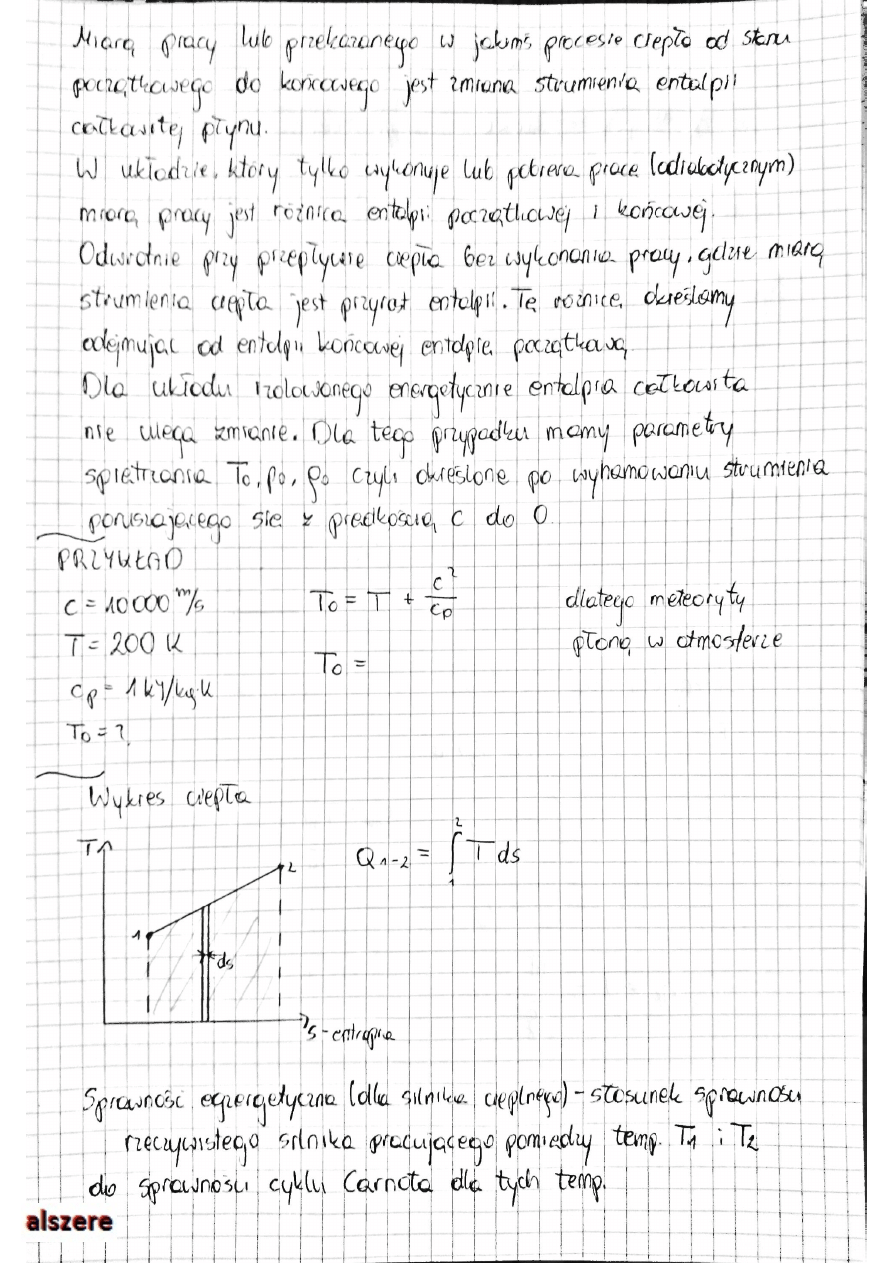 Miarą pracy lub przekazanego w jakimś procesie ciepło od stanu
początkowego do końcowego jest zmiana strumienia entalpii
całkowitej płynu.
W układzie, który tylko wykonuje lub pobiera pracę (adiabatycznym)
miarą pracy jest różnica entalpii początkowej i końcowej.
Odwrotnie przy przepływie ciepła bez wykonania pracy, gdzie miarą
strumienia ciepła jest przyrost entalpii. Tę różnicę określamy
odejmując od entalpii końcowej entalpię początkową
Dla układu izolowanego energetycznie entalpia całkowita
nie ulega zmianie. Dla tego przypadku mamy parametry
spiętrzania T₀, p₀, ρ₀ czyli określone po wyhamowaniu strumienia
poruszającego się z prędkością c do 0.
PRZYKŁAD
c = 10000 m/s
T = 200 K
cp = 1 kJ/kg·K
T₀ = ?
T₀ = T + c²/cp
T₀ =
dlatego meteoryty
płoną w atmosferze
Wykres ciepła
T
1
2
ds
s - entropia
Q₁₋₂ = ₁∫² T ds
Sprawność egzergetyczna (dla silnika cieplnego) - stosunek sprawności
rzeczywistego silnika pracującego pomiędzy temp. T₁ i T₂
do sprawności cyklu Carnota dla tych temp.
alszere